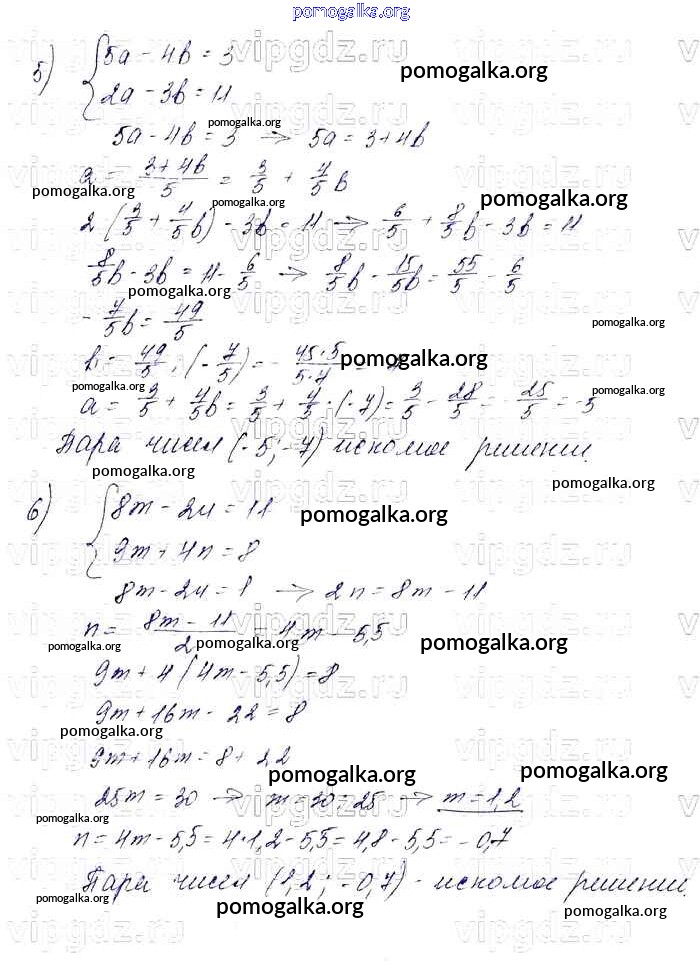 pomogalka.org
5) { 5a - 4b = 3
pomogalka.org
2a - 3b = 11
pomogalka.org
5a - 4b = 3 → 5a = 3 + 4b
a = (3+4b)/5 = 3/5 + 4/5 b
pomogalka.org pomogalka.org
2 (3/5 + 4/5 b) - 3b = 11 → 6/5 + 8/5 b - 3b = 11
8/5 b - 3b = 11 - 6/5 → 8/5 b - 15/5 b = 55/5 - 6/5
pomogalka.org
- 7/5 b = 49/5
pomogalka.org
b = 49/5 : (-7/5) = - 45·5/5·7 =
pomogalka.org
a = 3/5 + 4/5 b = 3/5 + 4/5 · (-7) = 3/5 - 28/5 = - 25/5 = -5
pomogalka.org pomogalka.org
Пара чисел (-5; -7) искомое решении.
pomogalka.org pomogalka.org
6) { 8m - 2n = 11
pomogalka.org
9m + 4n = 8
8m - 2n = 1 → 2n = 8m - 11
pomogalka.org
n = (8m - 11)/2 = 4m - 5,5
pomogalka.org pomogalka.org pomogalka.org
9m + 4 (4m - 5,5) = 8
9m + 16m - 22 = 8
pomogalka.org
9m + 16m = 8 + 22
pomogalka.org pomogalka.org
25m = 30 → m = 30 : 25 → m = 1,2
pomogalka.org
n = 4m - 5,5 = 4·1,2 - 5,5 = 4,8 - 5,5 = -0,7
Пара чисел (1,2; -0,7) - искомое решении.
pomogalka.org pomogalka.org
vipgdz.ru